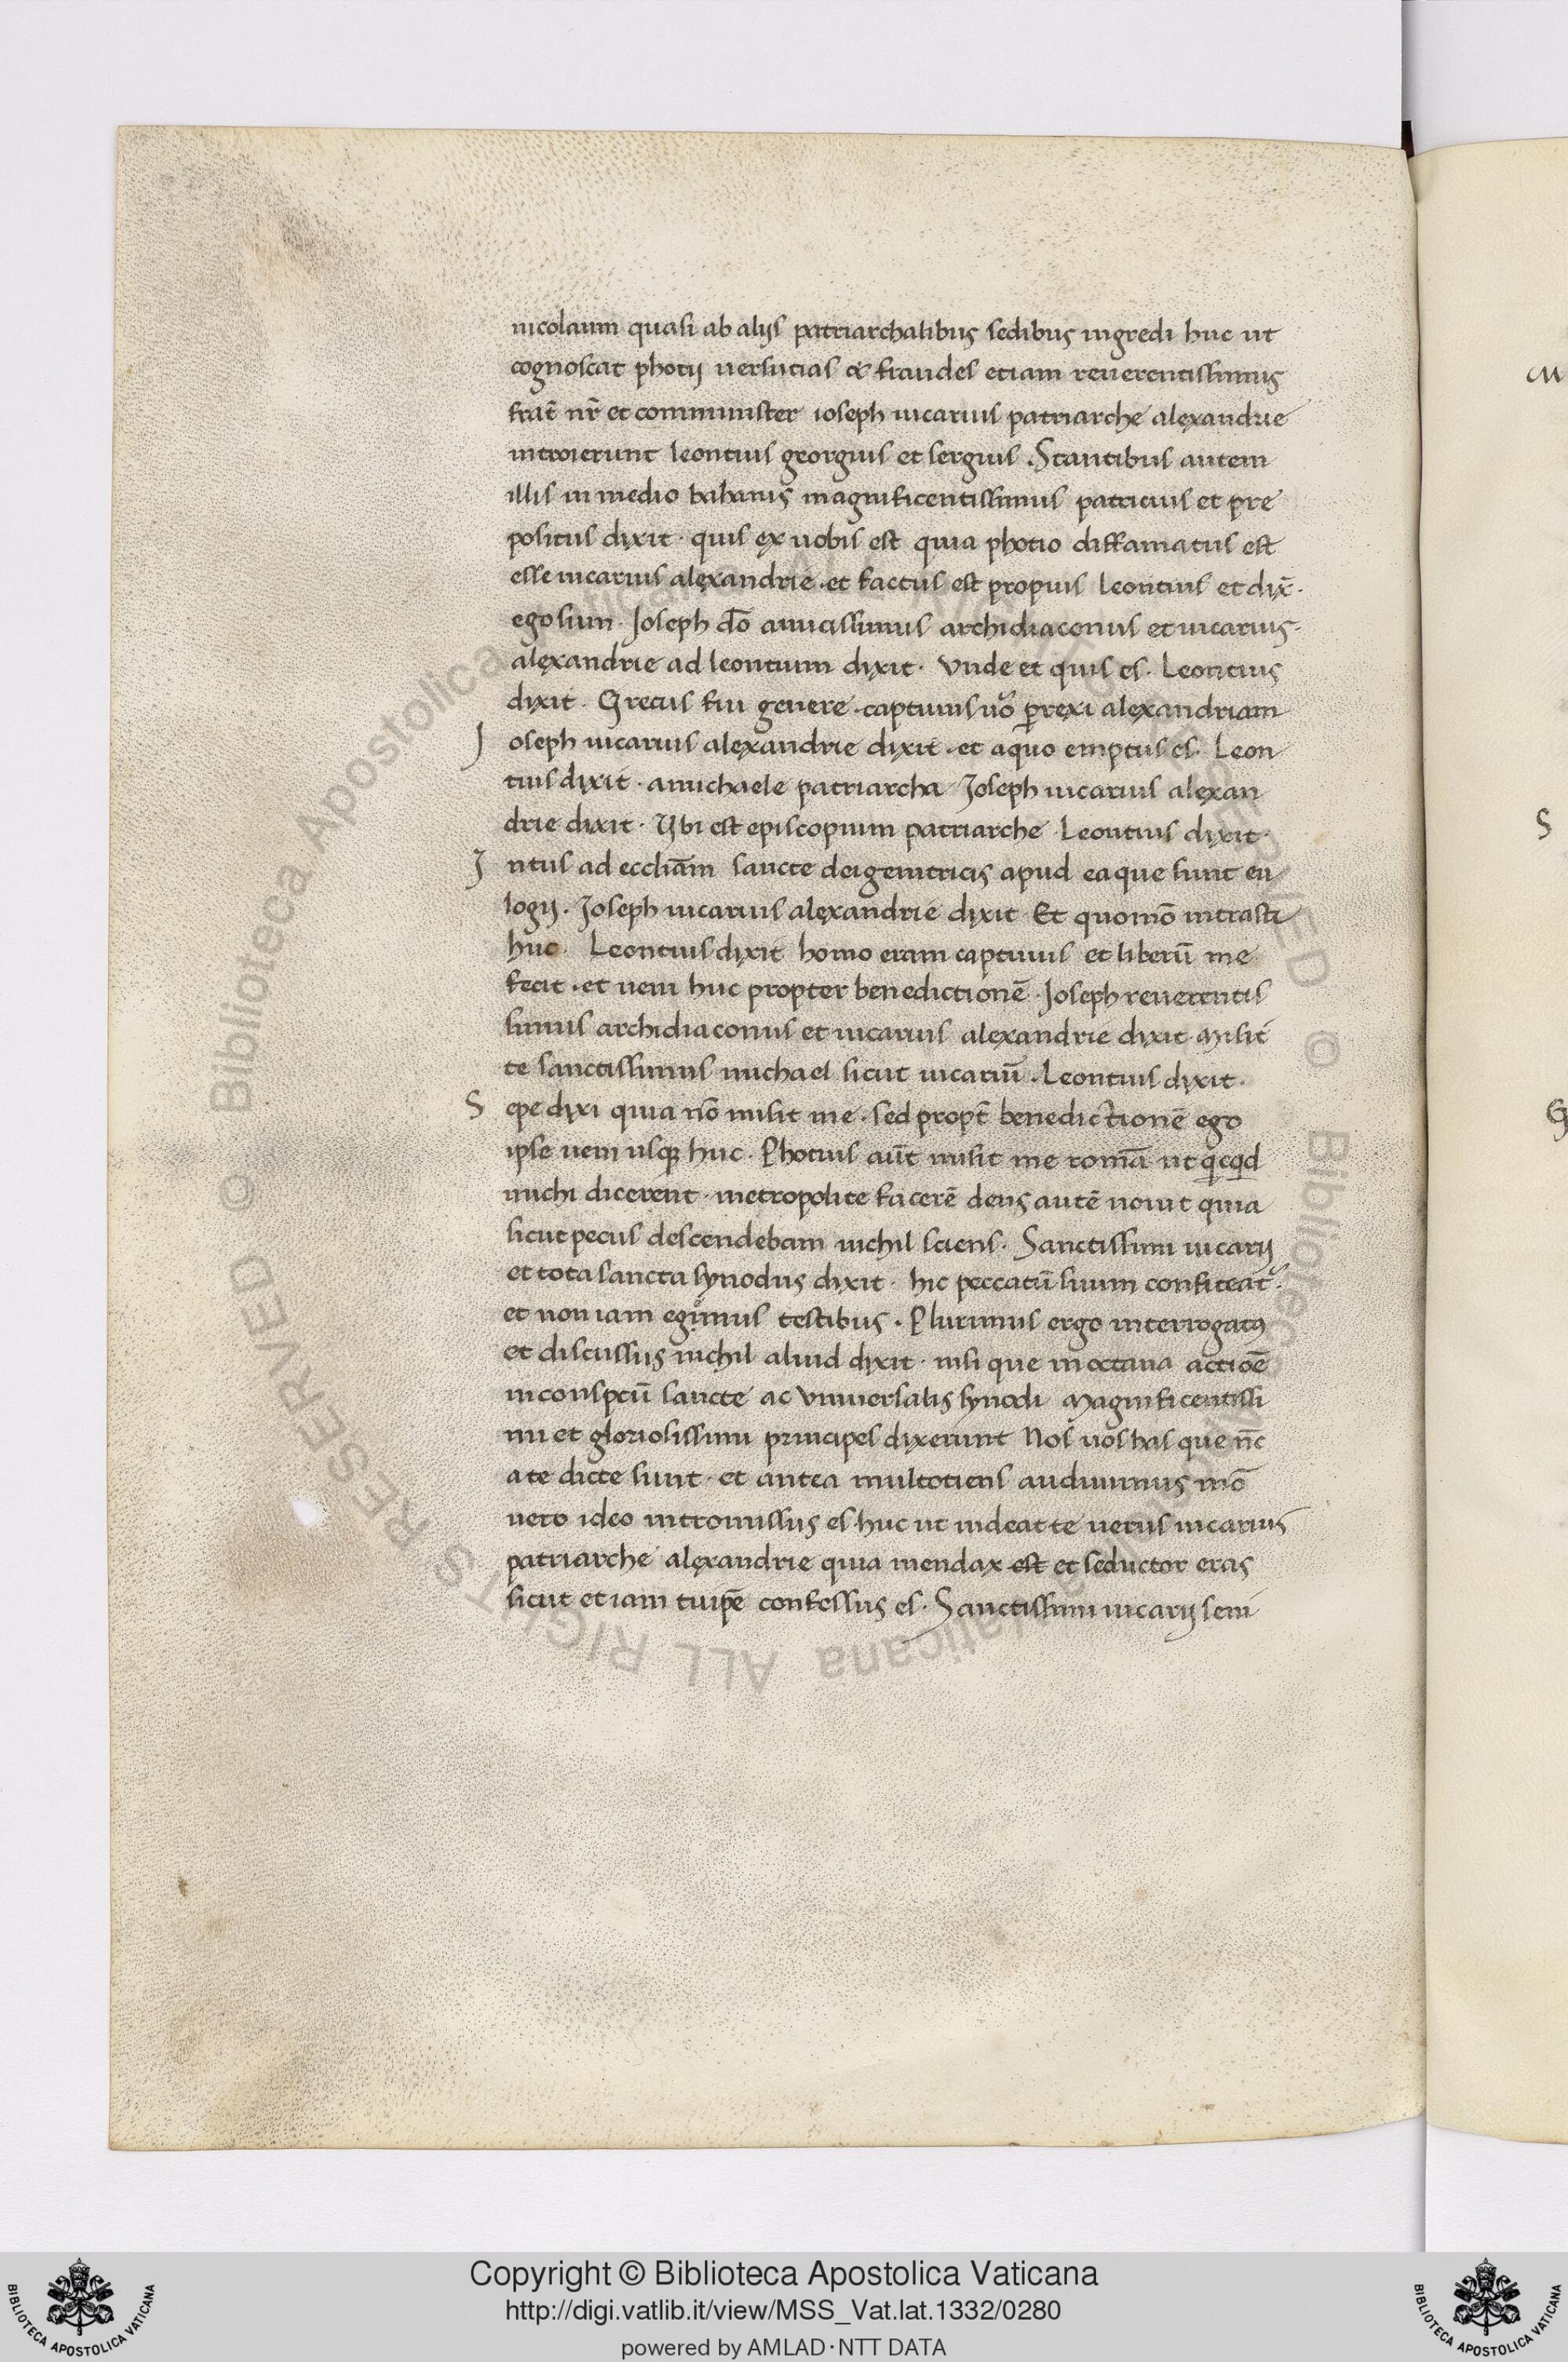 nicolaum quasi ab alijs patriarchalibus sedibus ingredi huc ut
cognoscat photij uersutias & fraudes etiam reuerentissimus
frat̄ nr̄ et comminister ioseph uicarius patriarche alexandrie
introierunt leontius georgius et sergius . Stantibus autem
illis in medio bahanis magnificentissimus patricius et pre
positus dixit · quis ex uobis est quia photio diffamatus est
esse uicarius alexandrie · et factus est propius leontius et dix̄ ·
ego sum · Joseph do̅ amicissimus archidiaconus et uicarius ·
alexandrie ad leontium dixit · Vnde et quis es · Leontius
dixit · Grecus fui genere · captiuus uo̅ ꝑrexi alexandriam
J oseph uicarius alexandrie dixit · et aquo emptus es · Leon
tius dixit · amichaele patriarcha · Joseph uicarius alexan
drie dixit · Vbi est episcopium patriarche Leontius dixit ·
J ntus ad eccliam̅ sancte deigenitricis apud ea que sunt eu
logij . Joseph uicarius alexandrie dixit Et quomo̅ intrasti
huc · Leontius dixit homo eram captiuus et liberu̅ me
fecit · et ueni huc propter benedictione̅ · Joseph reuerentis
simus archidiaconus et uicarius alexandrie dixit Misit
te sanctissimus michael sicut uicariu̅ . Leontius dixit ·
S epe dixi quia no̅ misit me · sed propt̄ benedictione̅ ego
ipse ueni usqꝫ huc · Photius aut̄ misit me roma̅ ut qͥcqͥd
michi dicerent · metropolite facere̅ deus aute̅ nouit quia
sicut pecus descendebam nichil sciens · Sanctissimi uicarij
et tota sancta synodus dixit · hic peccatu̅ suum confiteat᷑ ·
et non iam egimus testibus · Plurimus ergo interrogatꝰ
et discussus nichil aliud dixit · nisi que in octaua actioe̅
in conspcu̅ sancte ac Vniuersalis synodi Magnificentissi
mi et gloriosissimi principes dixerunt Nos uos has que nc̅
a te dicte sunt · et antea multotiens audiuimus mo̅
uero ideo intromissus es huc ut uideat te uerus uicarius
patriarche alexandrie quia mendax est et seductor eras
sicut etiam tuipe̅ confessus es · Sanctissimi uicarij seni
M
S
G
© Biblioteca Apostolica Vaticana ALL RIGHTS RESERVED
Copyright © Biblioteca Apostolica Vaticana
http://digi.vatlib.it/view/MSS_Vat.lat.1332/0280
powered by AMLAD · NTT DATA
BIBLIOTECA APOSTOLICA VATICANA
BIBLIOTECA APOSTOLICA VATICANA